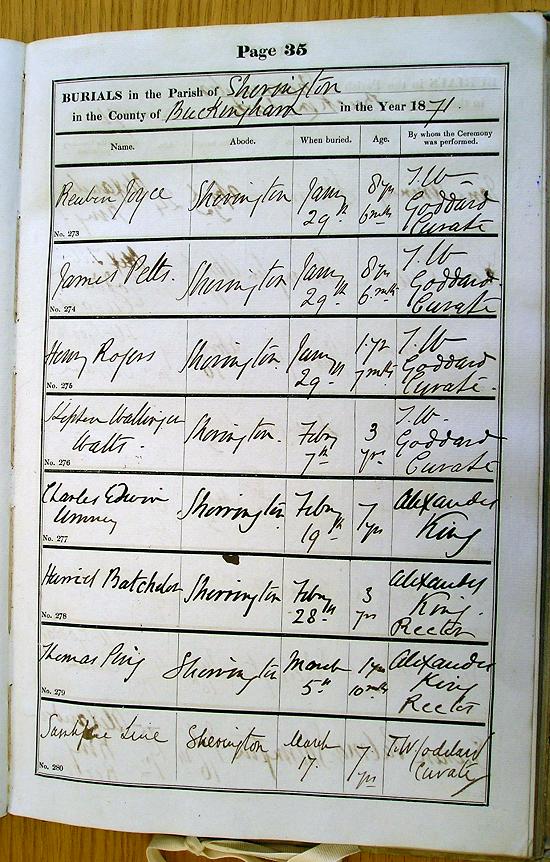 Page 35
BURIALS in the Parish of Sherington
in the County of Buckingham in the Year 1871.
Name. Abode. When buried. Age. By whom the Ceremony was performed.
Reuben Joyce Sherington Jany 29th 8 yrs 6 mths T. W. Goddard Curate
No. 273
James Pells. Sherington Jany 29th 8 yrs 6 mths T. W. Goddard Curate
No. 274
Henry Rogers Sherington Jany 29th 1 yr 7 mths T. W. Goddard Curate.
No. 275
Stephen Wallinger Watts. Sherington. Feby 7th 3 yrs T. W. Goddard Curate
No. 276
Charles Edwin Sherrington Feby 19th 7 yrs Alexander King
No. 277
Harriet Batchelor Sherrington Feby 28th 3 yrs Alexander King. Rector
No. 278
Thomas Sherrington March 5th 1 yr 10 mths Alexander King Rector
No. 279
Line Sherington March 17. 7 yrs T. W. Goddard Curate
No. 280